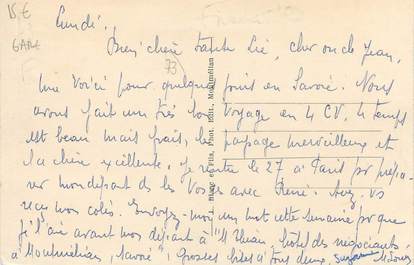 15 €
GARE
Lundi.
73
Bien chère tante Lie, cher oncle Jean,
Me voici pour quelques jours en Savoie. Nous
avons fait un très bon voyage en 4 CV. le temps
est beau mais frais, le paysage merveilleux et
la chère excellente. Je rentre le 27 à Paris pr prépa-
rer mon départ ds les Vosges avec René. Avez-vs
reçu mon colis. Envoyez-moi un mot cette semaine pr que
je l'aie avant mon départ à "M. hôtel des négociants
à Montmélian, Savoie". Grosses bises à tous deux. Suzanne
Montmélian